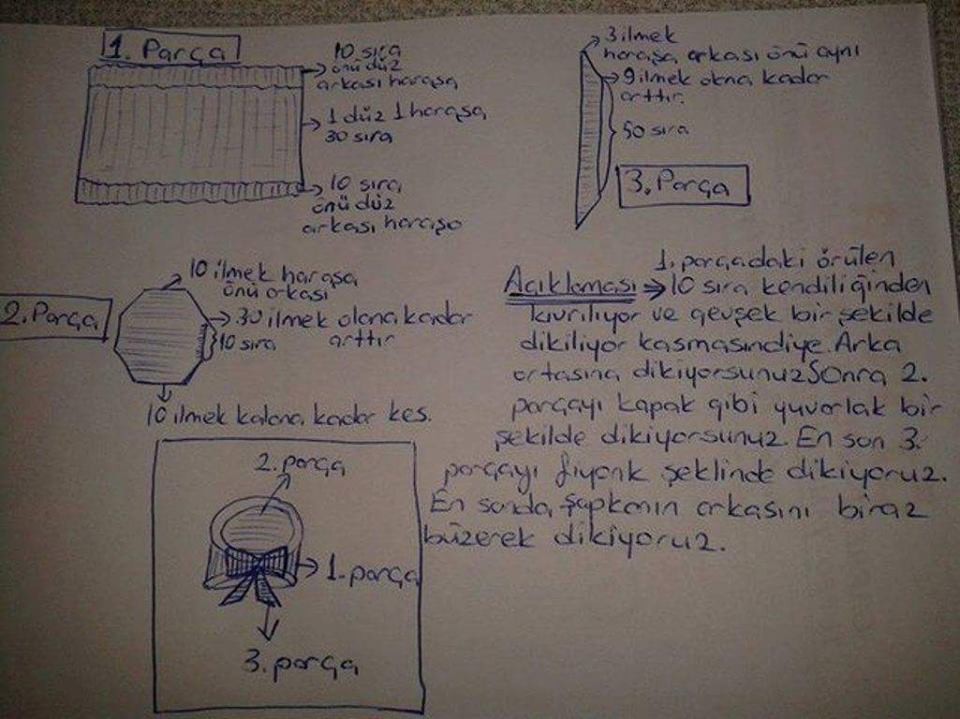 1. Parça
10 sıra
önü düz
arkası haraşa
1 düz 1 haraşa
30 sıra
10 sıra
önü düz
arkası haraşo
3 ilmek
haraşa arkası önü aynı
9 ilmek olana kadar
arttır.
50 sıra
3. Parça
2. Parça
10 ilmek haraşa
önü arkası
30 ilmek olana kadar
arttır
10 sıra
10 ilmek kalana kadar kes.
Açıklaması → 1. parçadaki örülen
10 sıra kendiliğinden
kıvrılıyor ve gevşek bir şekilde
dikiliyor kasmasındiye. Arka
ortasına dikiyorsunuz Sonra 2.
parçayı kapak gibi yuvorlak bir
şekilde dikiyorsunuz. En son 3.
parçayı fiyonk şeklinde dikiyoruz.
En sonda şapkanın arkasını biraz
büzerek dikiyoruz.
2. parça
1. parça
3. parça